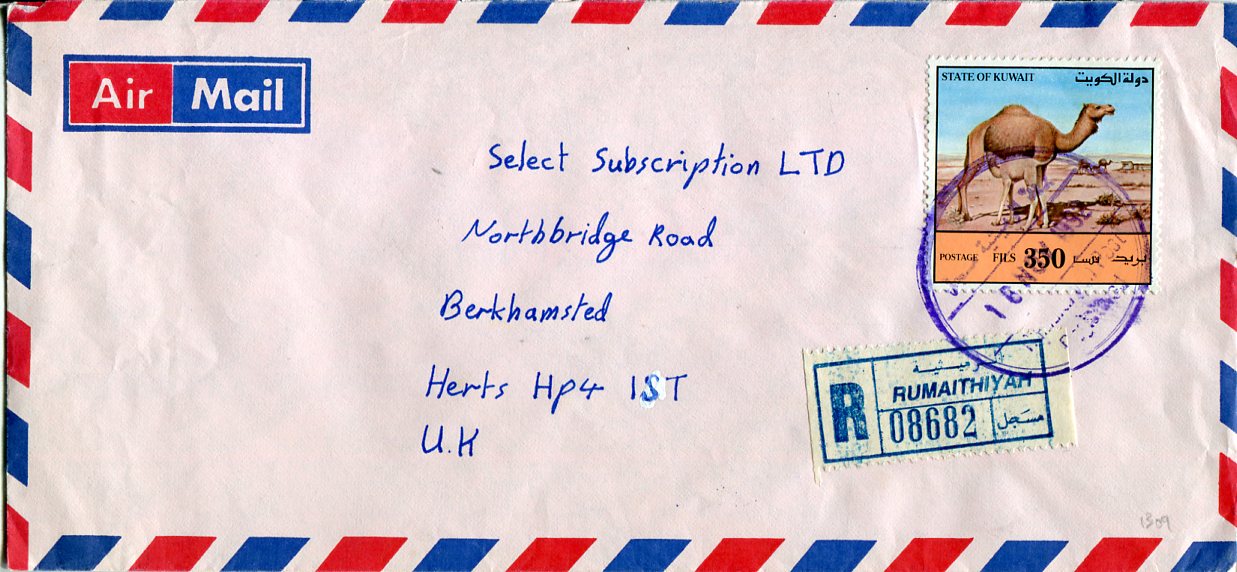 Air Mail
STATE OF KUWAIT دولة الكويت
POSTAGE FILS 350 فلسا بريد
Select Subscription LTD
Northbridge Road
Berkhamsted
Herts Hp4 1ST
U.K
16 NO
R
RUMAITHIYAH
08682 مسجل
1309